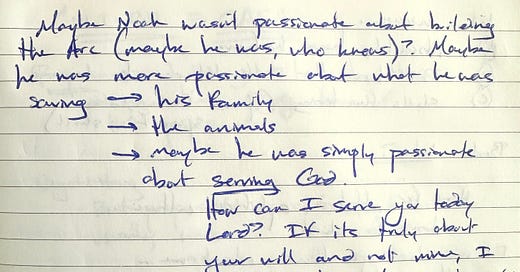 Maybe Noah wasn't passionate about building
the Arc (maybe he was, who knows)? Maybe
he was more passionate about what he was
saving → his family
→ the animals
→ maybe he was simply passionate
about serving God.
How can I serve you today
Lord? If its truly about
your will and not mine, I